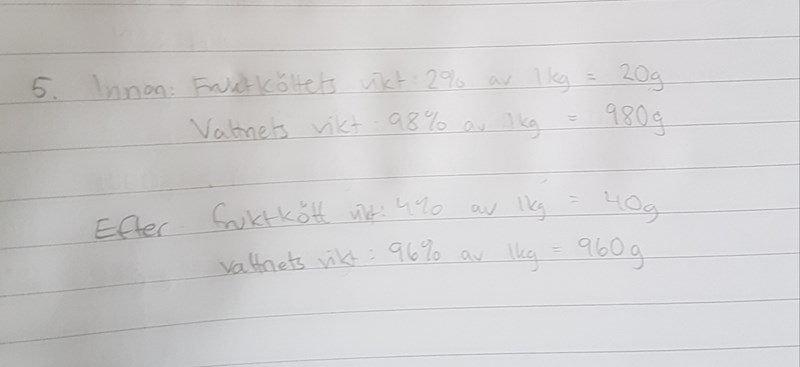 5. Innan: Fruktköttets vikt: 2% av 1kg = 20g
Vattnets vikt: 98% av 1kg = 980g
Efter: fruktkött vikt: 4% av 1kg = 40g
vattnets vikt: 96% av 1kg = 960g